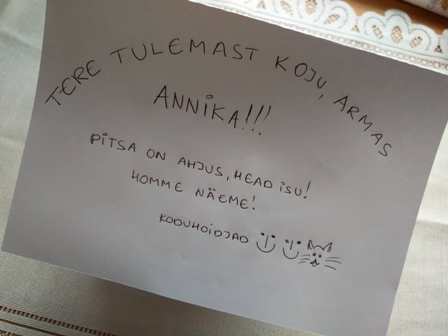 TERE TULEMAST KOJU, ARMAS
ANNIKA!!!
PITSA ON AHJUS, HEAD ISU!
HOMME NÄEME!
KODUHOIDJAD